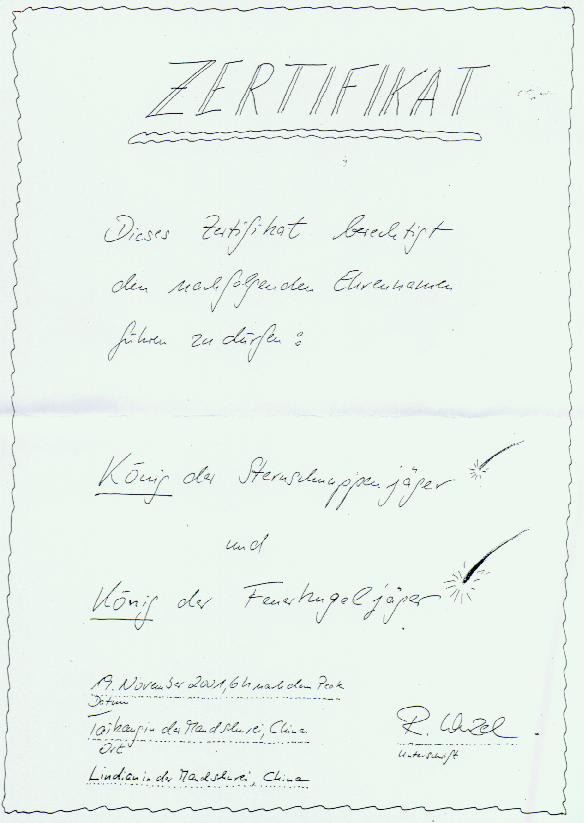 ZERTIFIKAT
Dieses Zertifikat berechtigt
den nachfolgenden Ehrennamen
führen zu dürfen:
König der Sternschnuppenjäger
und
König der Feuerkugeljäger
19. November 2001, 6h nach dem Peak
Datum
in der Mandschurei, China
Ort
Lindian in der Mandschurei, China
R.
Unterschrift